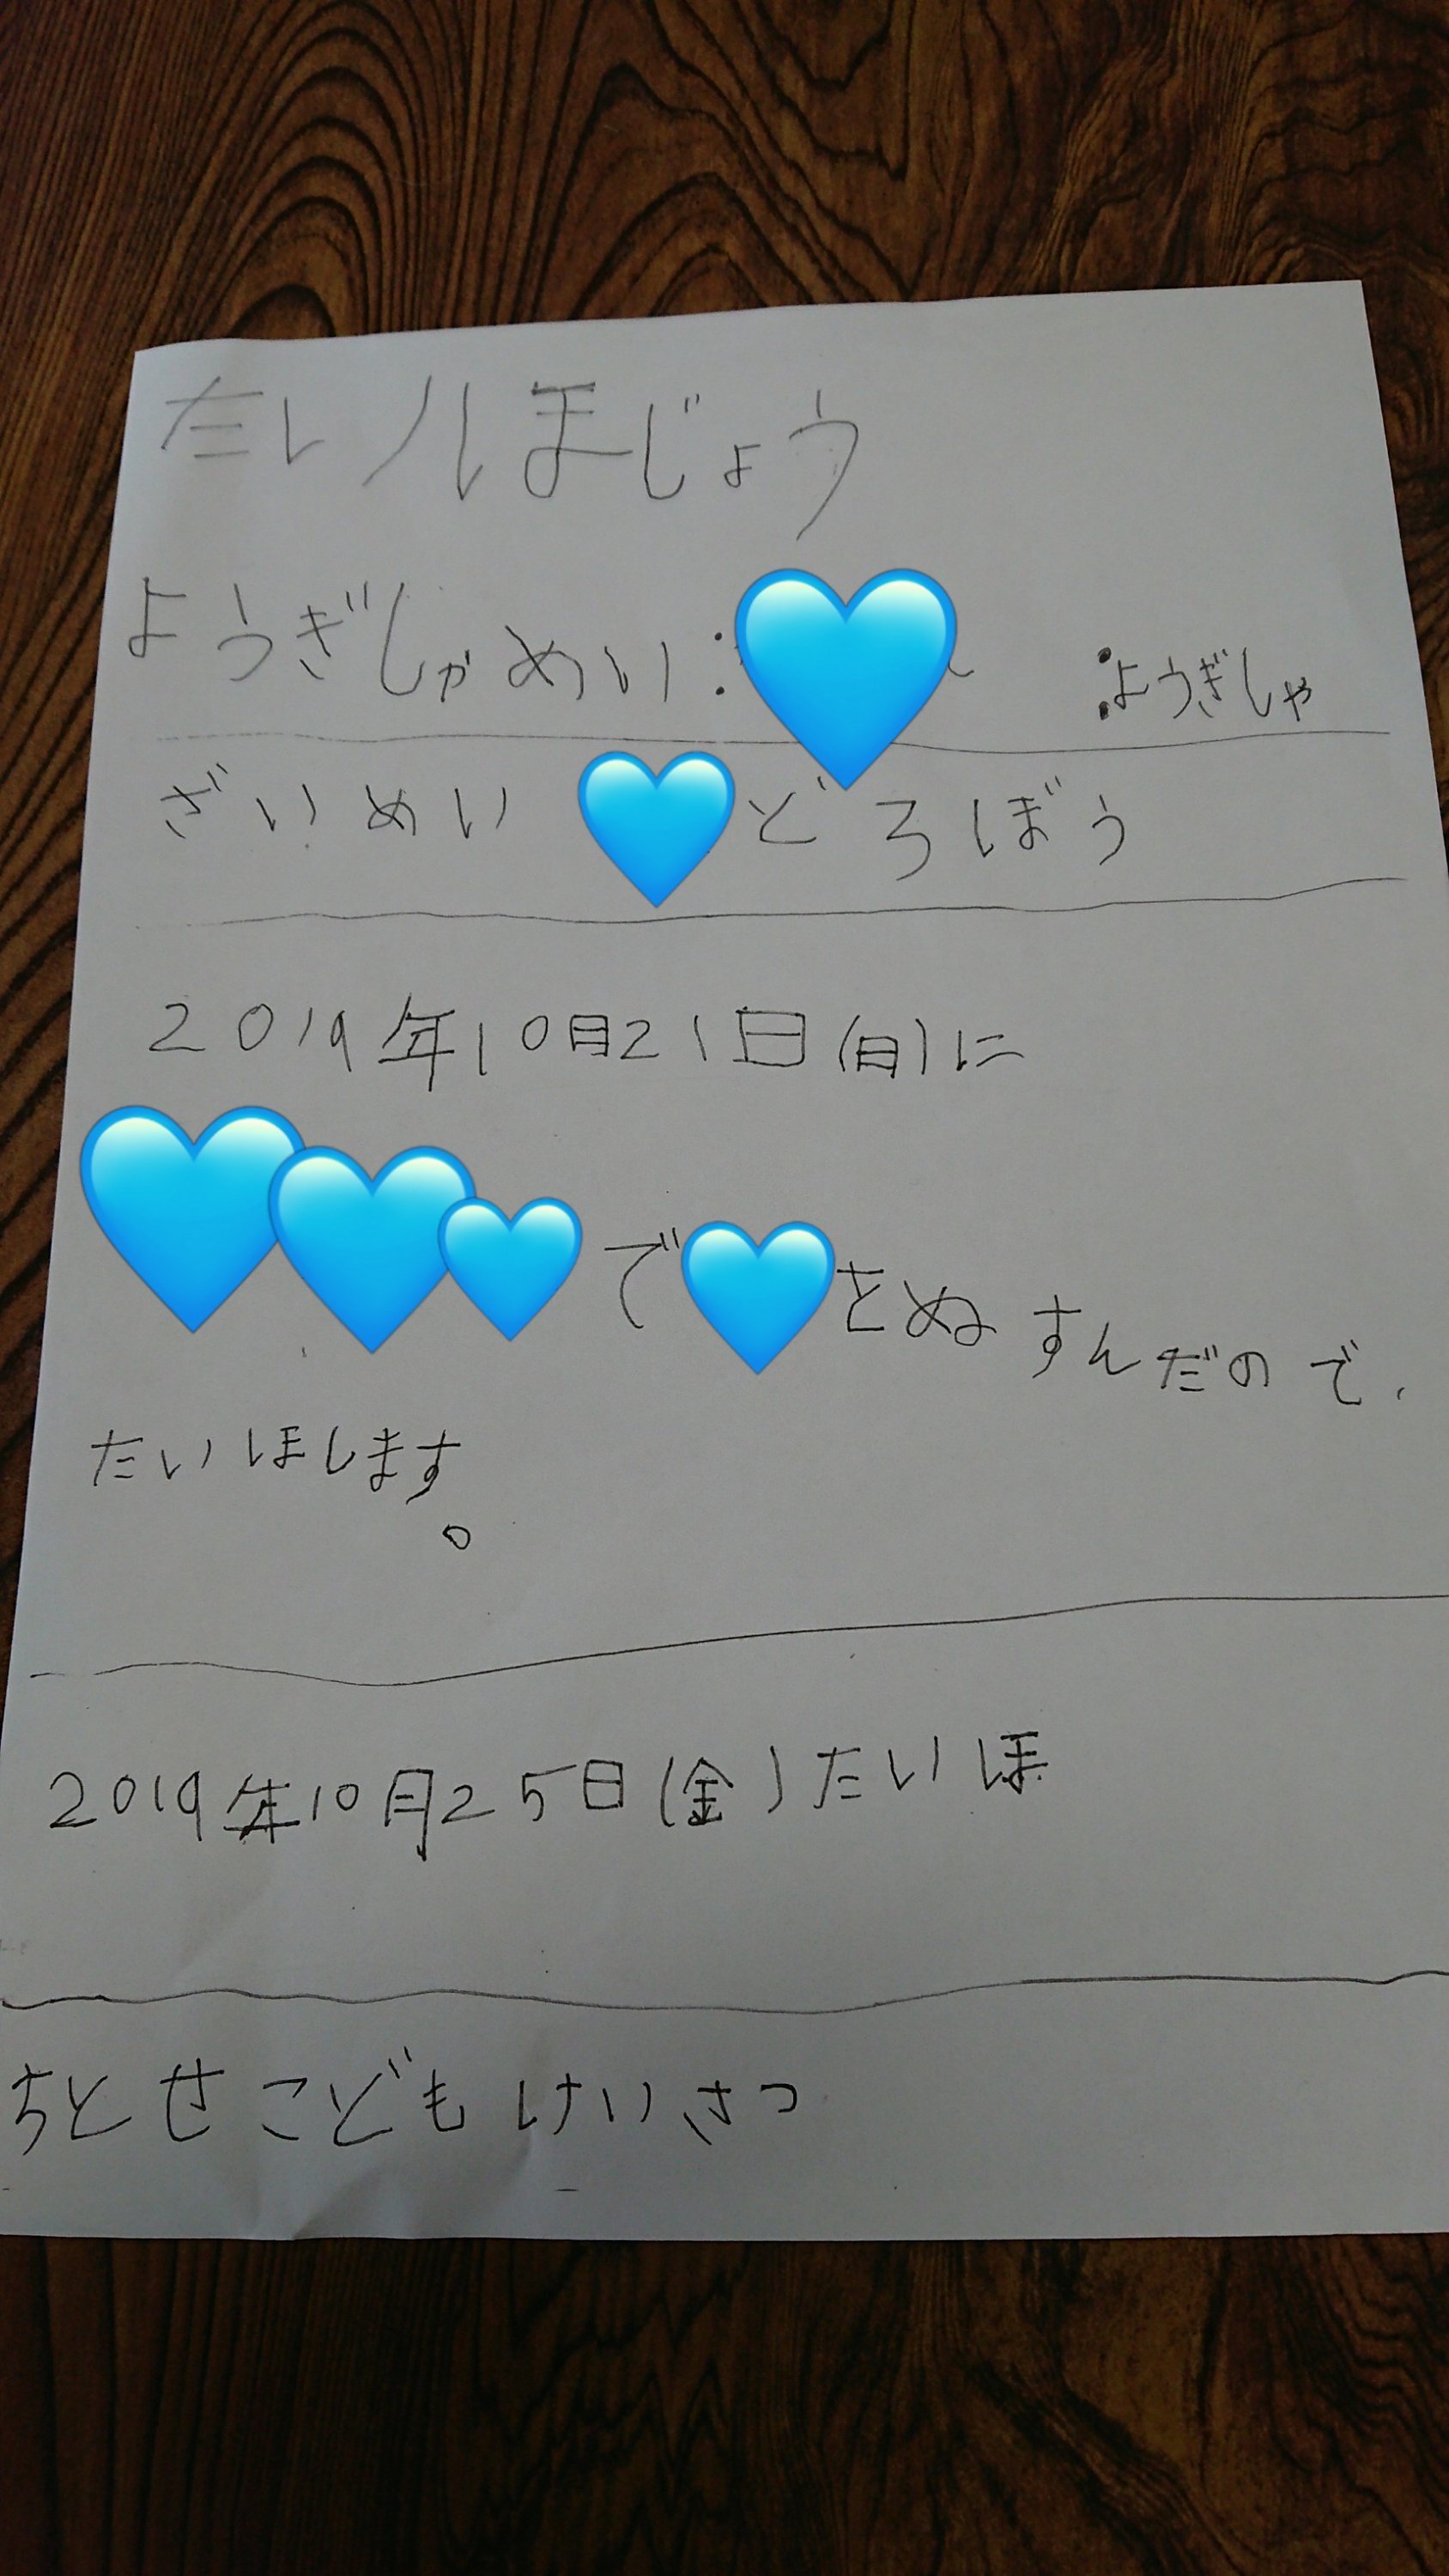 たいほじょう
ようぎしゃめい: :ようぎしゃ
ざいめい どろぼう
2019年10月21日(日)に
で をぬすんだので、
たいほします。
2019年10月25日(金)たいほ
ちとせこどもけいさつ